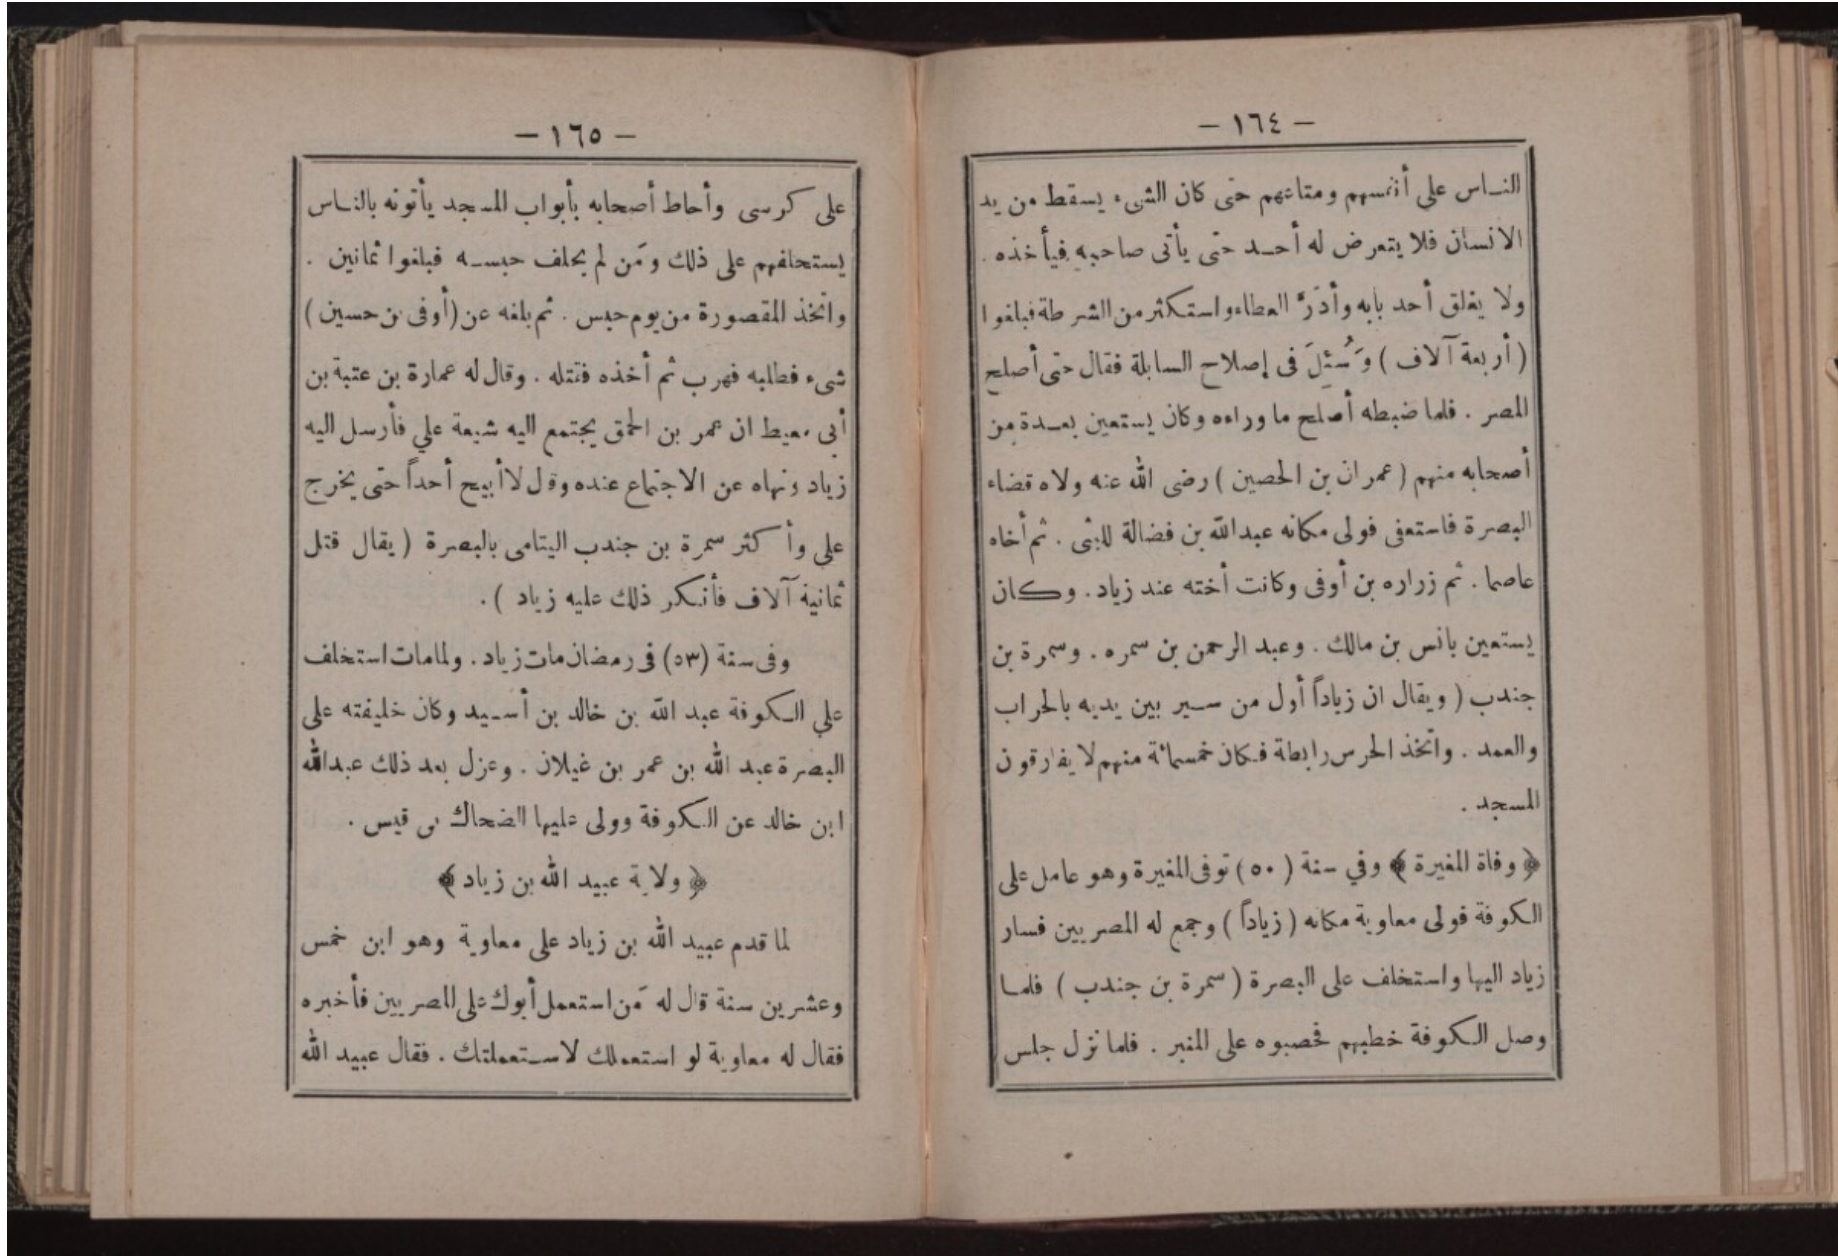 — ١٦٤ —
الناس على أنفسهم ومتاعهم حتى كان الشىء يسقط من يد
الانسان فلا يتعرض له أحد حتى يأتى صاحبه فيأخذه .
ولا يغلق أحد بابه وأدَرَّ العطاء واستكثر من الشرطة فبلغوا
( أربعة آلاف ) وَسُئِلَ فى إصلاح السابلة فقال حتى أصلح
المصر . فلما ضبطه أصلح ما وراءه وكان يستعين بعدة من
أصحابه منهم ( عمران بن الحصين ) رضى الله عنه ولاه قضاء
البصرة فاستعفى فولى مكانه عبدالله بن فضالة الليثى . ثم أخاه
عاصما . ثم زراره بن أوفى وكانت أخته عند زياد . وكان
يستعين بانس بن مالك . وعبد الرحمن بن سمره . وسمرة بن
جندب ( ويقال ان زياداً أول من سير بين يديه بالحراب
والعمد . واتخذ الحرس رابطة فكان خمسمائة منهم لا يفارقون
المسجد .
﴿ وفاة المغيرة ﴾ وفي سنة ( ٥٠ ) توفى المغيرة وهو عامل على
الكوفة فولى معاوية مكانه ( زياداً ) وجمع له المصريين فسار
زياد اليها واستخلف على البصرة ( سمرة بن جندب ) فلما
وصل الكوفة خطبهم فحصبوه على المنبر . فلما نزل جلس
— ١٦٥ —
على كرسى وأحاط أصحابه بأبواب المسجد يأتونه بالناس
يستحلفهم على ذلك ومَن لم يحلف حبسه فبلغوا ثمانين .
واتخذ المقصورة من يوم حبس . ثم بلغه عن ( أوفى بن حسين )
شىء فطلبه فهرب ثم أخذه فقتله . وقال له عمارة بن عتبة بن
أبى معيط ان عمر بن الحمق يجتمع اليه شيعة علي فأرسل اليه
زياد ونهاه عن الاجتماع عنده وقال لا أبيح أحداً حتى يخرج
على وأكثر سمرة بن جندب اليتامى بالبصرة ( يقال قتل
ثمانية آلاف فأنكر ذلك عليه زياد ) .
وفى سنة (٥٣) فى رمضان مات زياد . ولما مات استخلف
علي الكوفة عبد الله بن خالد بن أسيد وكان خليفته على
البصرة عبد الله بن عمر بن غيلان . وعزل بعد ذلك عبدالله
ابن خالد عن الكوفة وولى عليها الضحاك بن قيس .
﴿ ولاية عبيد الله بن زياد ﴾
لما قدم عبيد الله بن زياد على معاوية وهو ابن خمس
وعشرين سنة قال له مَن استعمل أبوك على المصريين فأخبره
فقال له معاوية لو استعملك لاستعملتك . فقال عبيد الله